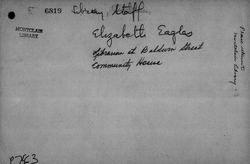 E 6819 Library Staff
MONTCLAIR
LIBRARY
Elizabeth Eagles
Librarian at Baldwin Street
Community House
P783